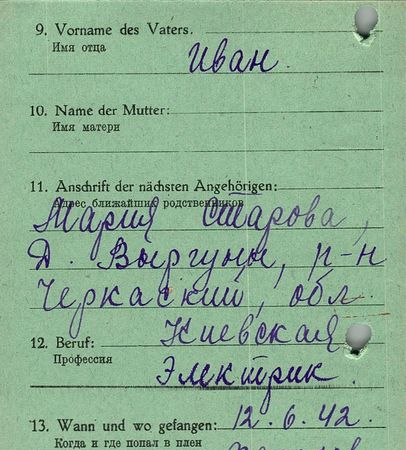 9. Vorname des Vaters.
Имя отца
Иван.
10. Name der Mutter:
Имя матери
11. Anschrift der nächsten Angehörigen:
Адрес ближайших родственников
Мария Старова,
д. Выргуны, р-н
Черкаский, обл.
Киевская
12. Beruf:
Профессия
Электрик.
13. Wann und wo gefangen: 12.6.42.
Когда и где попал в плен